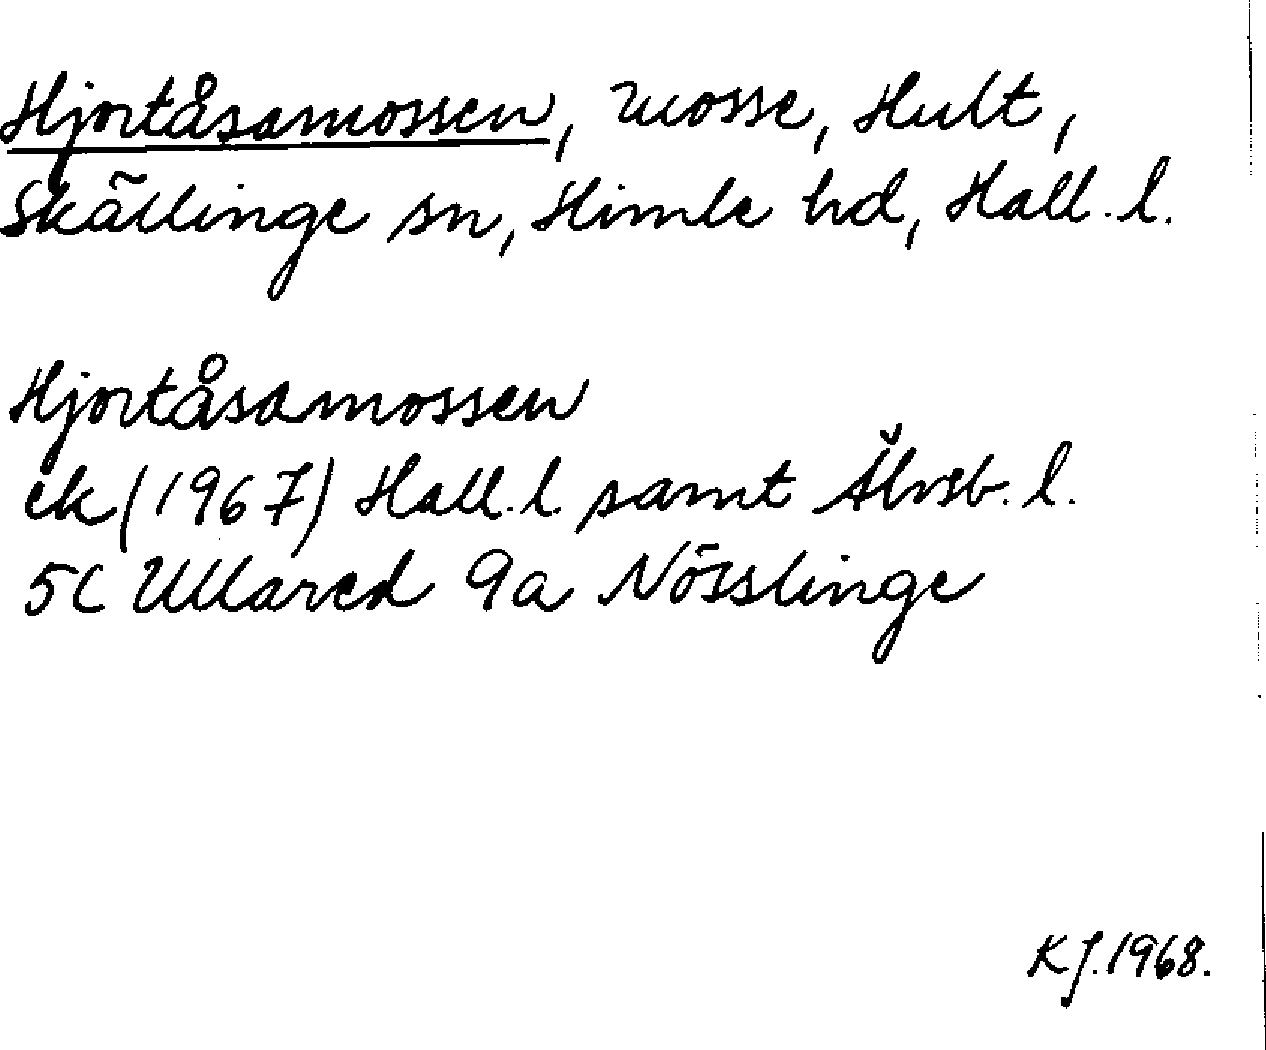 Hjortåsamossen, mosse, Hult,
Skällinge sn, Himle hd, Hall. l.
Hjortåsamossen
ek (1967) Hall. l. samt Älvsb. l.
5C Ullared 9a Nösslinge
KJ. 1968.